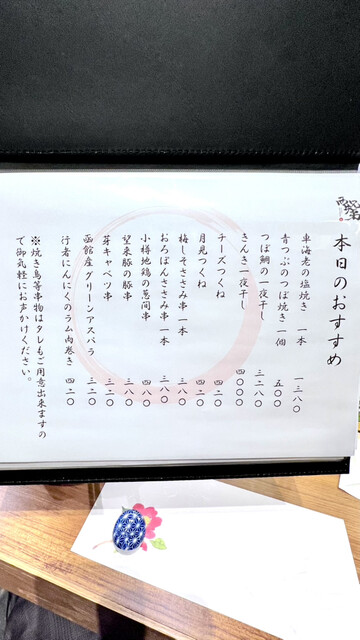 本日のおすすめ
車海老の塩焼き 一本 一三八〇
青つぶのつぼ焼き 一個 五〇〇
つぼ鯛の一夜干し 三二八〇
きんき一夜干し 四〇〇〇
チーズつくね 四二〇
月見つくね 四二〇
梅しそささみ串 一本 三八〇
おろぽんささみ串 一本 三八〇
小樽地鶏の葱間串 四八〇
望来豚の豚串 三八〇
芽キャベツ串 三二〇
函館産グリーンアスパラ 三二〇
行者にんにくのラム肉巻き 四二〇
※焼き鳥等串物はタレもご用意出来ますの
で御気軽にお声かけください。